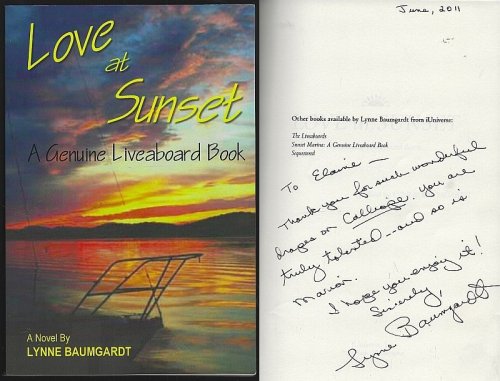 Love
at
Sunset
A Genuine Liveaboard Book
A Novel By
LYNNE BAUMGARDT
June, 2011
Other books available by Lynne Baumgardt from iUniverse:
The Liveaboards
Sunset Marina: A Genuine Liveaboard Book
Sequestered
To Elaine —
Thank you for such wonderful
drapes on Calliope. You are
truly talented -- and so is
Marion.
I hope you enjoy it!
Sincerely,
Lynne Baumgardt